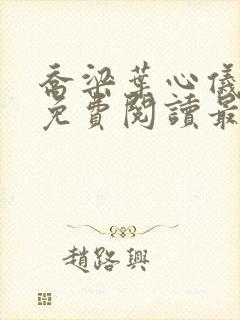 喬梁葉心儀
免費閱讀最
趙路興